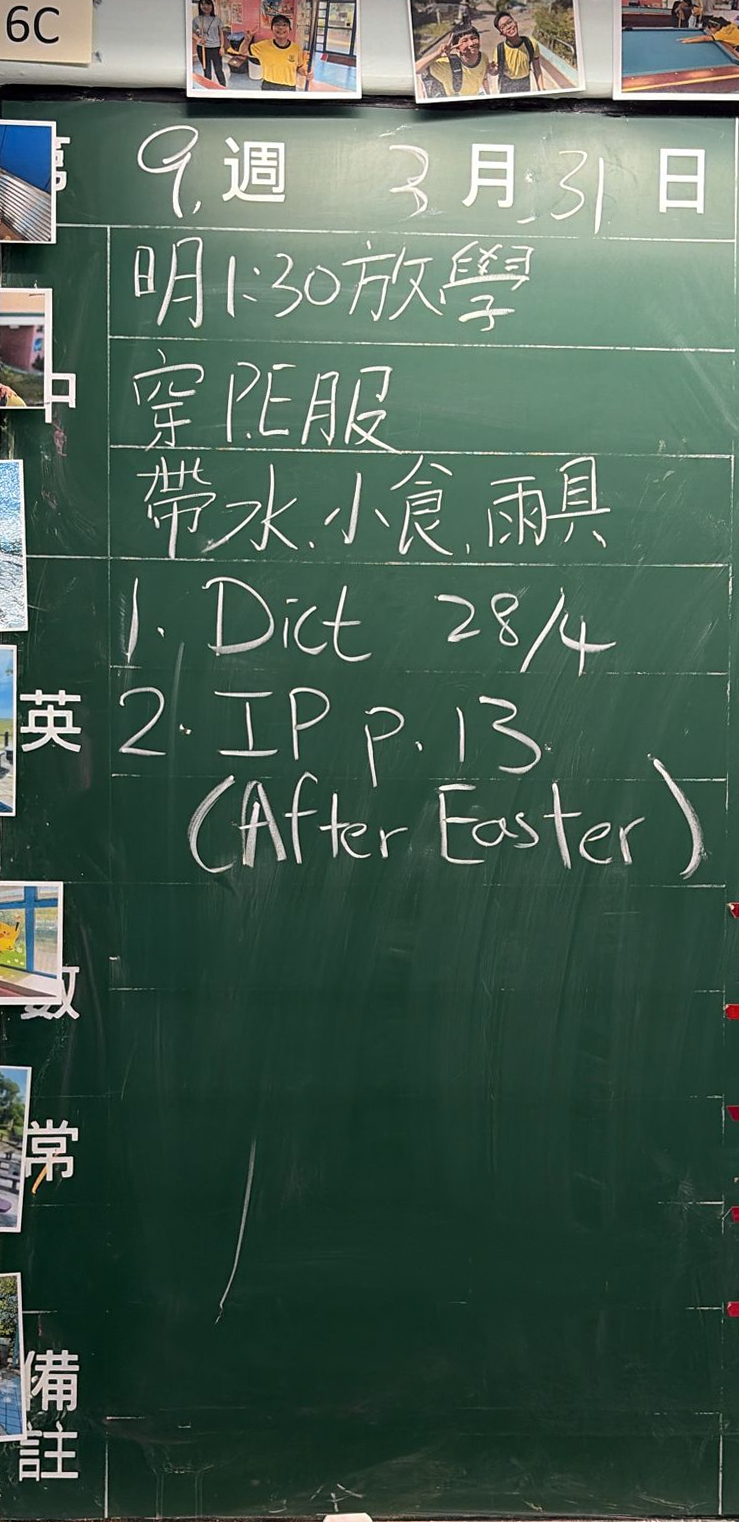 6C
第 9 週 3 月 31 日
明1:30放學
中 穿P.E服
帶水、小食、雨具
1. Dict 28/4
英 2. IP p. 13
(After Easter)
數
常
備註